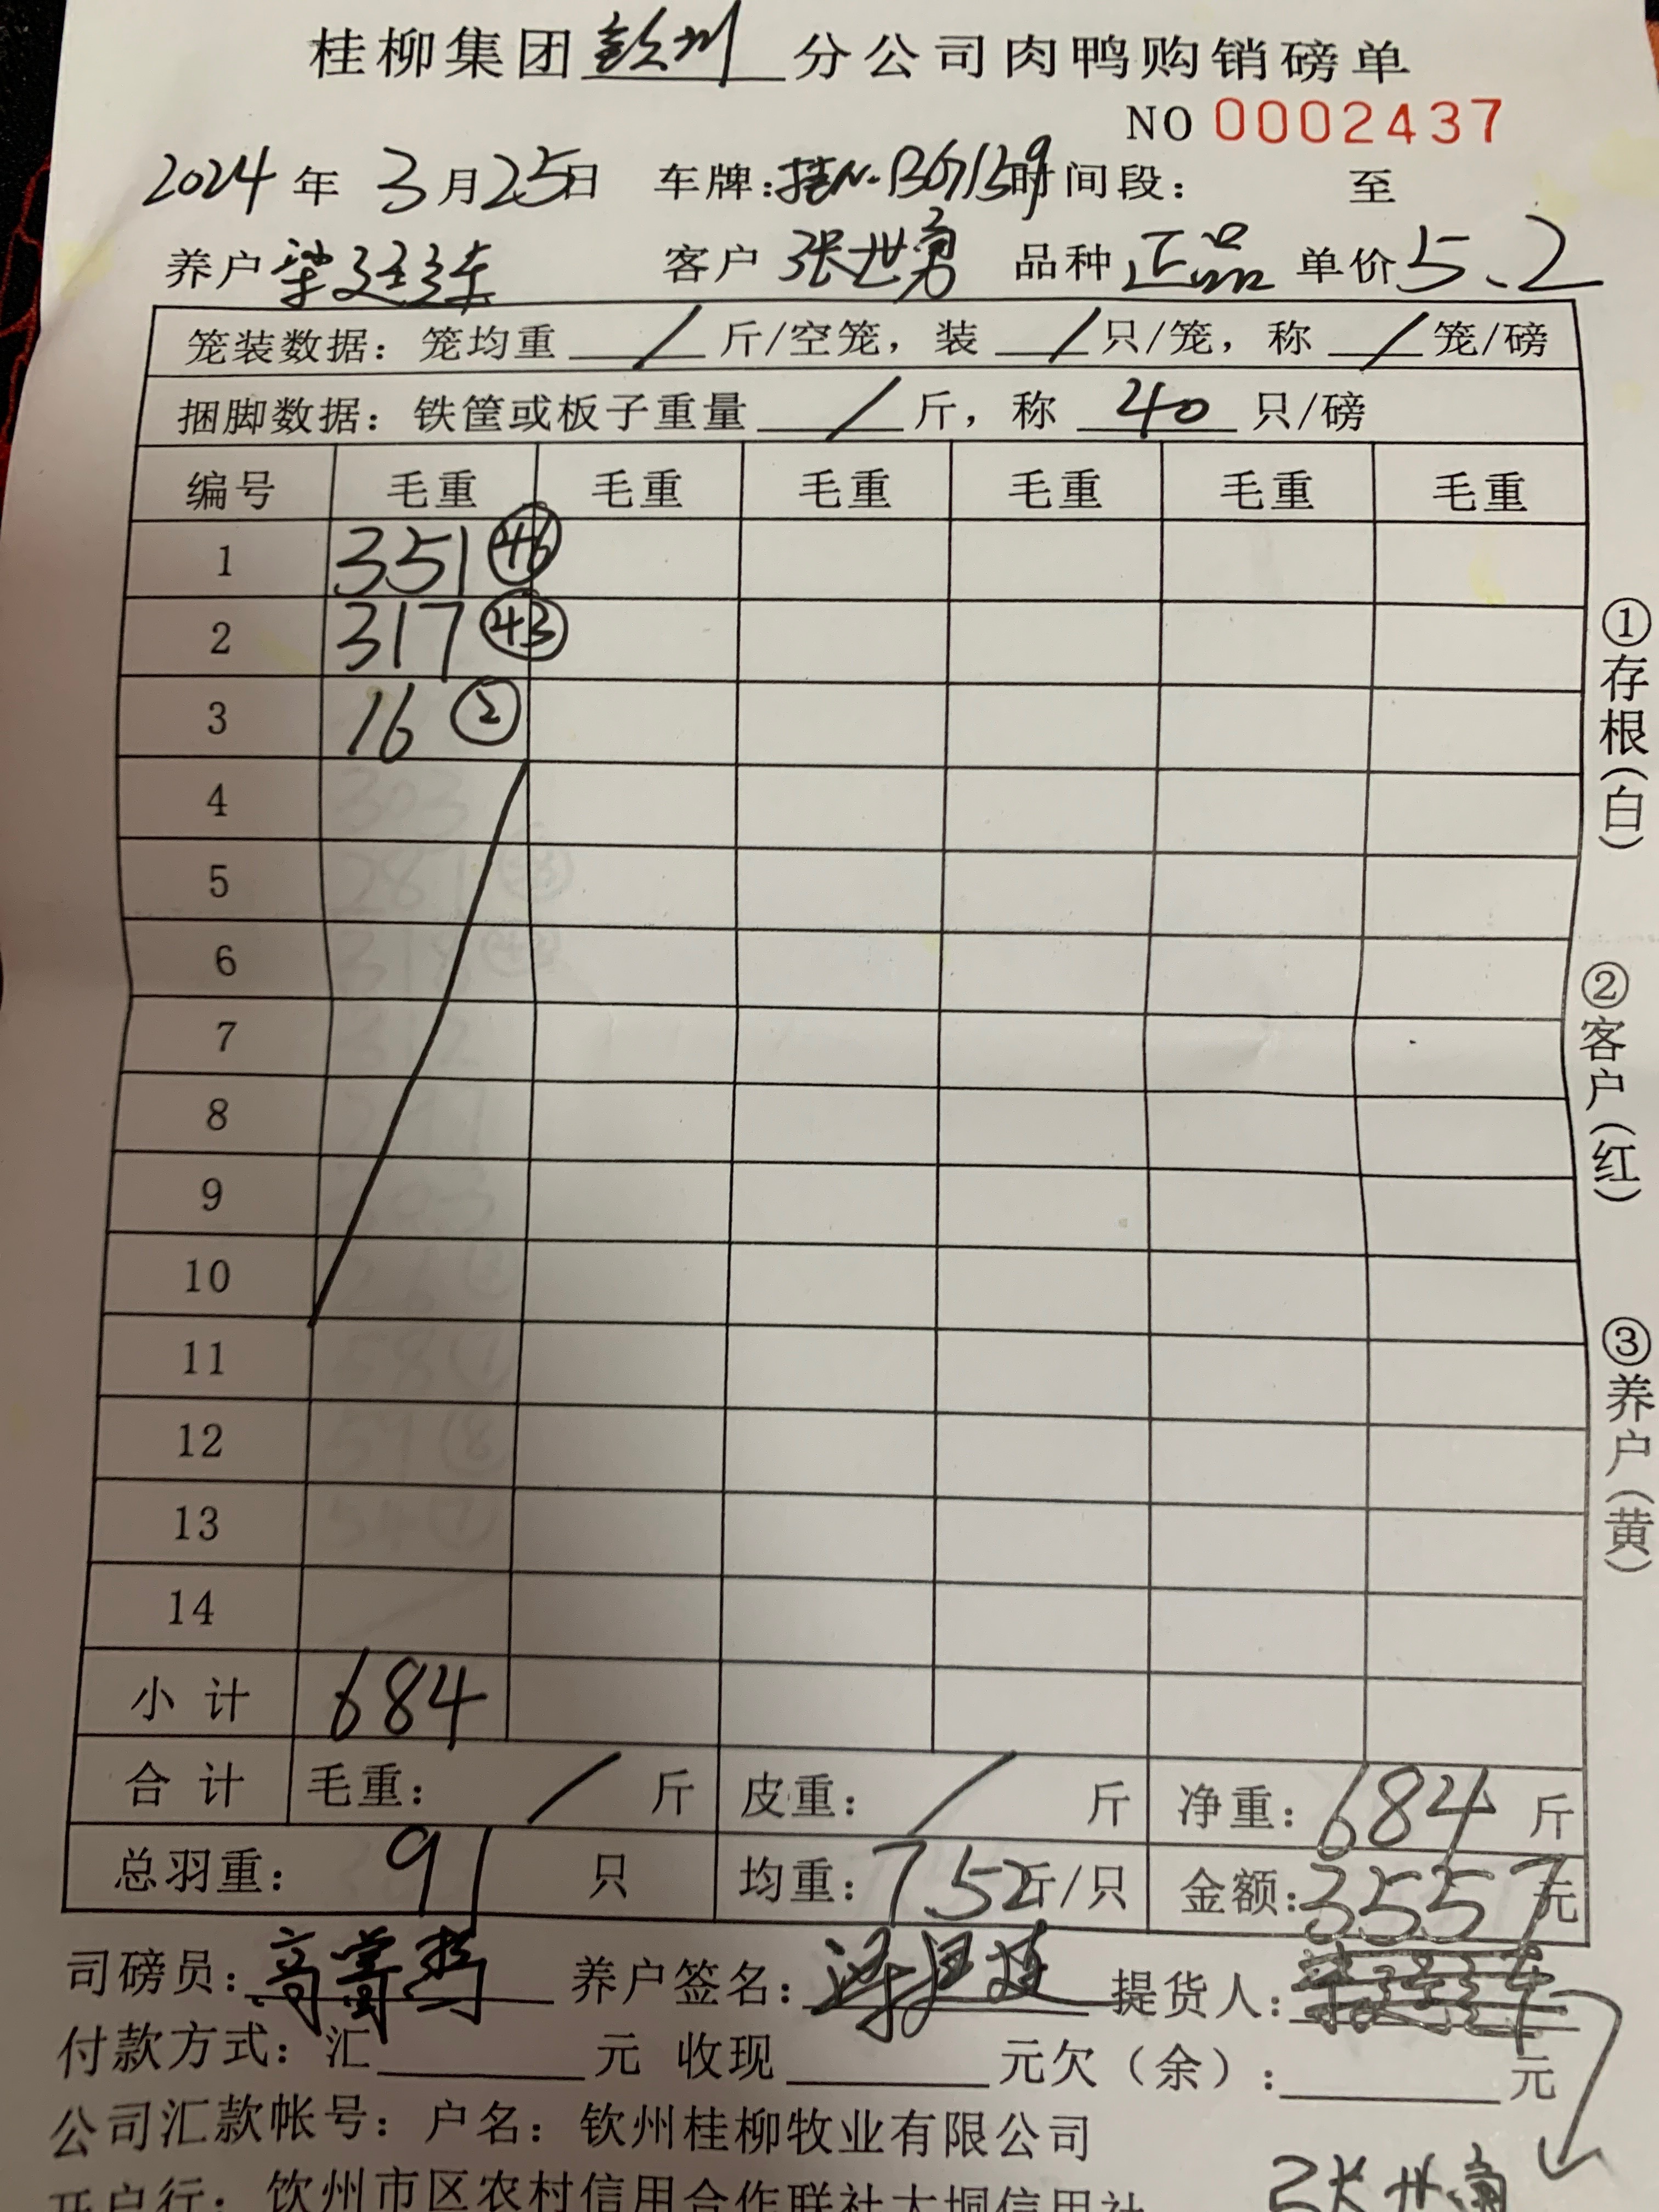 桂柳集团钦州分公司肉鸭购销磅单
NO 0002437
2024年3月25日 车牌:桂N·BG7159时间段: 至
养户 梁廷连 客户 张世勇 品种 正品 单价5.2
笼装数据: 笼均重 / 斤/空笼, 装 / 只/笼, 称 / 笼/磅
捆脚数据: 铁筐或板子重量 / 斤, 称 40 只/磅
编号 毛重 毛重 毛重 毛重 毛重 毛重
1 351 46
2 317 43
3 16 2
4
5
6
7
8
9
10
11
12
13
14
小计 684
合计 毛重: / 斤 皮重: / 斤 净重: 684 斤
总羽重: 91 只 均重: 7.52斤/只 金额:3557元
司磅员: 养户签名: 提货人:
付款方式: 汇 元 收现 元欠(余): 元
公司汇款帐号: 户名: 钦州桂柳牧业有限公司
张世勇
开户行: 钦州市区农村信用合作联社大垌信用社
①存根(白)
②客户(红)
③养户(黄)